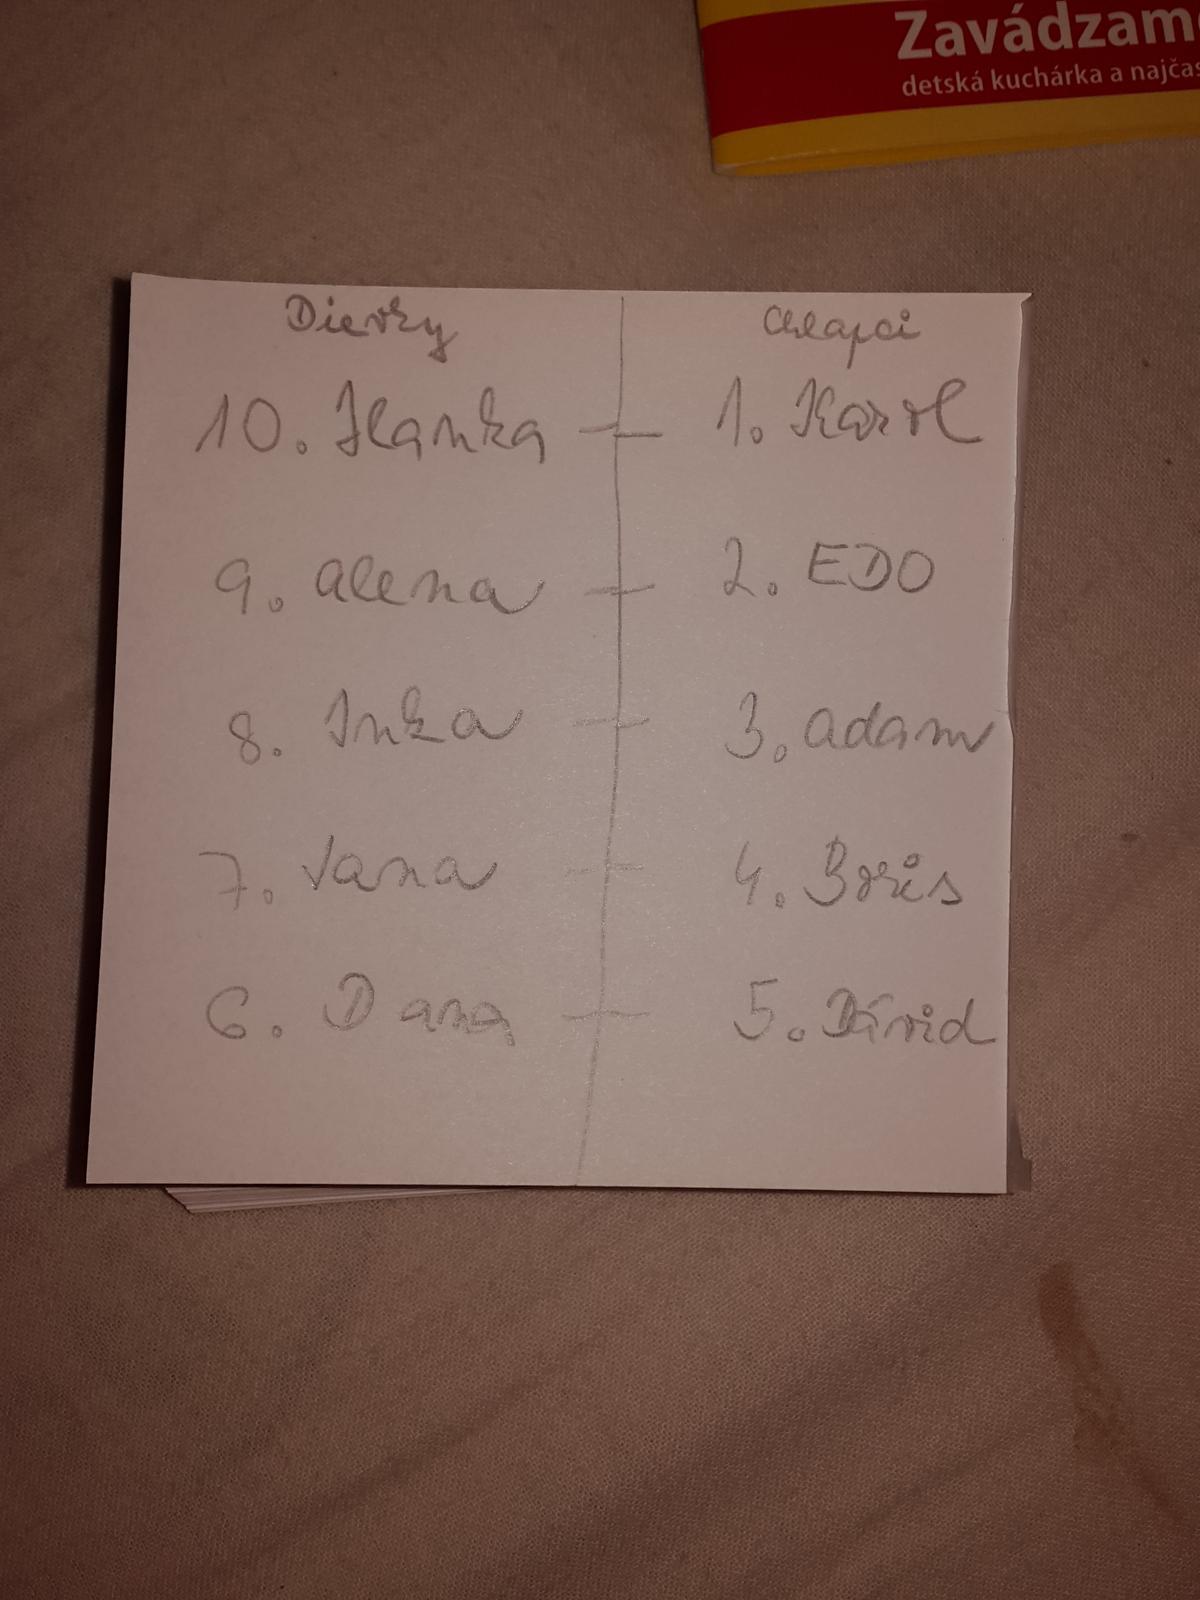 Zavádzam
detská kuchárka a najčas
Dievky Chlapci
10. Hanka - 1. Karol
9. Alena - 2. EDO
8. Inka - 3. Adam
7. Jana - 4. Boris
6. Dana - 5. Dávid